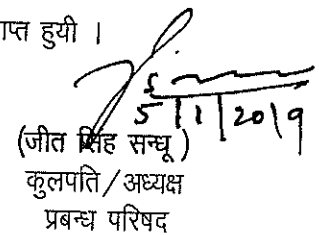 ाप्त हुयी ।
5/1/2019
(जीत सिंह सन्धू)
कुलपति/अध्यक्ष
प्रबन्ध परिषद